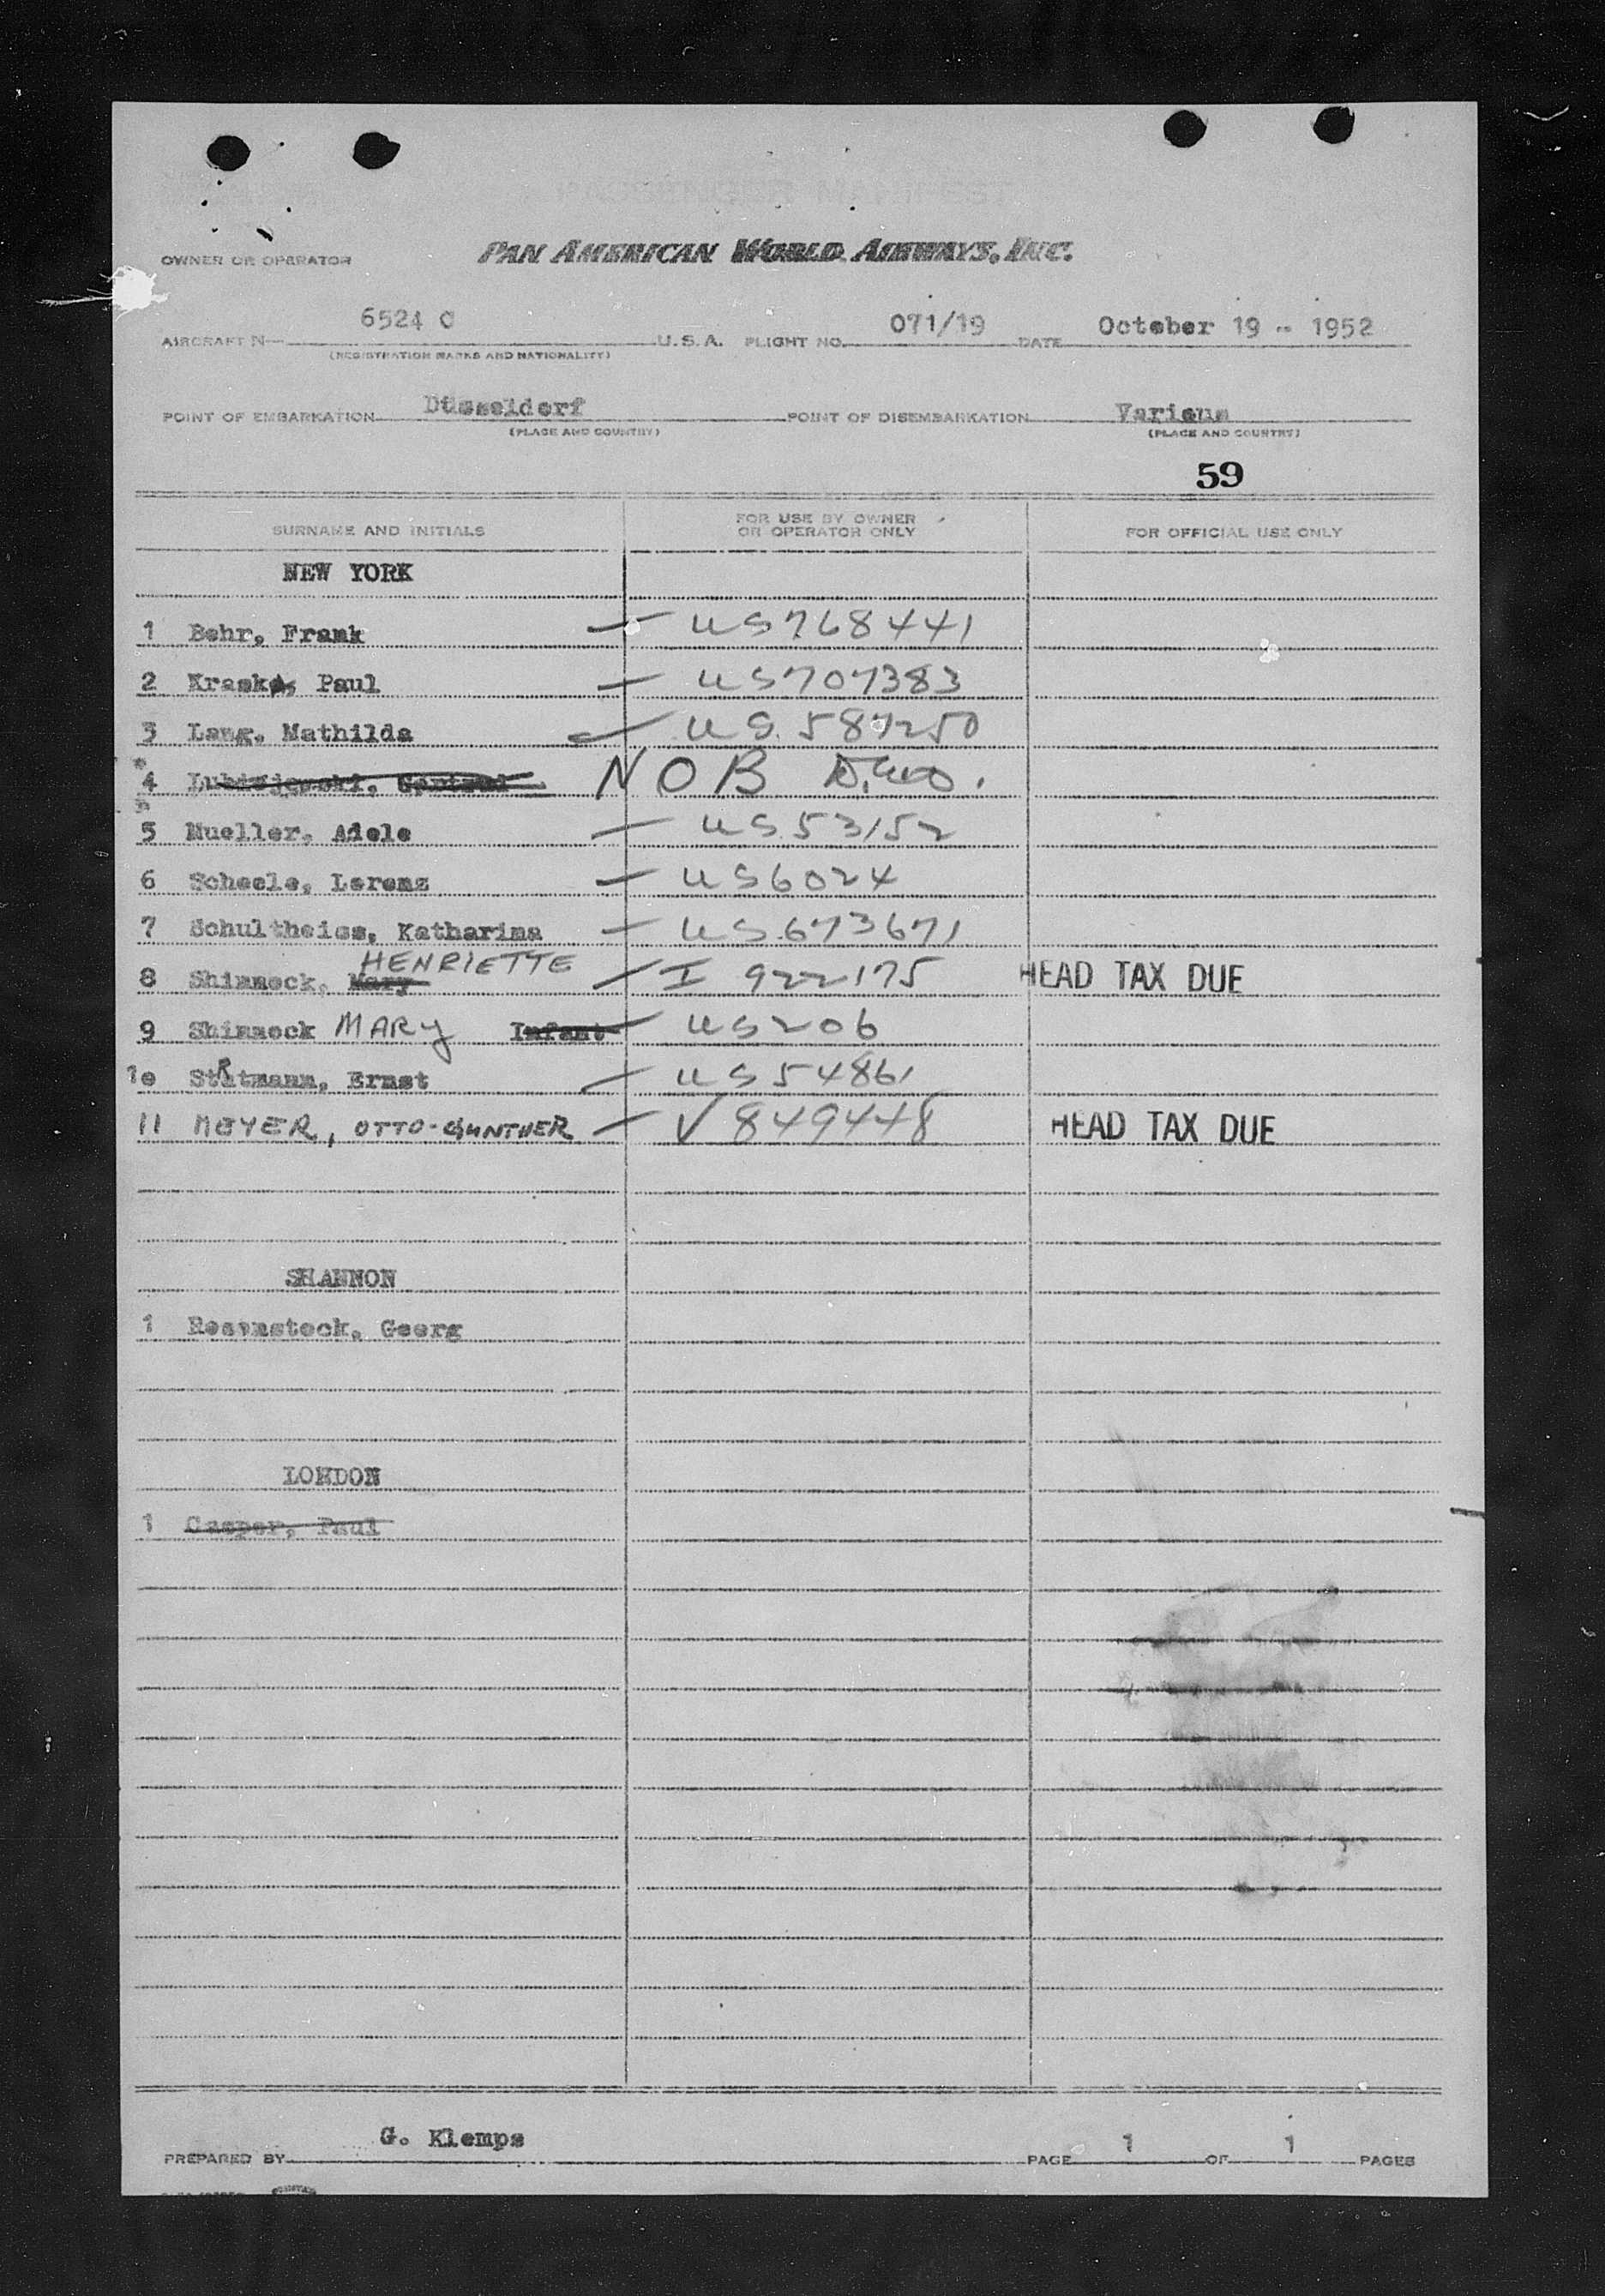 PASSENGER MANIFEST
OWNER OR OPERATOR PAN AMERICAN WORLD AIRWAYS, INC.
AIRCRAFT N 6524 C U.S.A. FLIGHT NO. 071/19 DATE October 19 - 1952
(REGISTRATION MARKS AND NATIONALITY)
POINT OF EMBARKATION Düsseldorf POINT OF DISEMBARKATION Various
(PLACE AND COUNTRY) (PLACE AND COUNTRY)
59
SURNAME AND INITIALS FOR USE BY OWNER OR OPERATOR ONLY FOR OFFICIAL USE ONLY
NEW YORK
1 Behr, Frank — US 768441
2 Krask, Paul — US 707383
3 Lang, Mathilda — US. 587250
4 NOB
5 Mueller, Adele — US. 53152
6 Scheele, Lorenz — US 6024
7 Schultheiss, Katharina — US. 673671
8 Shimmeck, Mary HENRIETTE — I 922175 HEAD TAX DUE
9 Shimmeck MARY Infant — US 206
10 StRtmann, Ernst — US 54861
11 MEYER, OTTO-GUNTHER — V 849448 HEAD TAX DUE
SHANNON
1 Rosenstock, Georg
LONDON
1 Casper, Paul
PREPARED BY G. Klemps PAGE 1 OF 1 PAGES